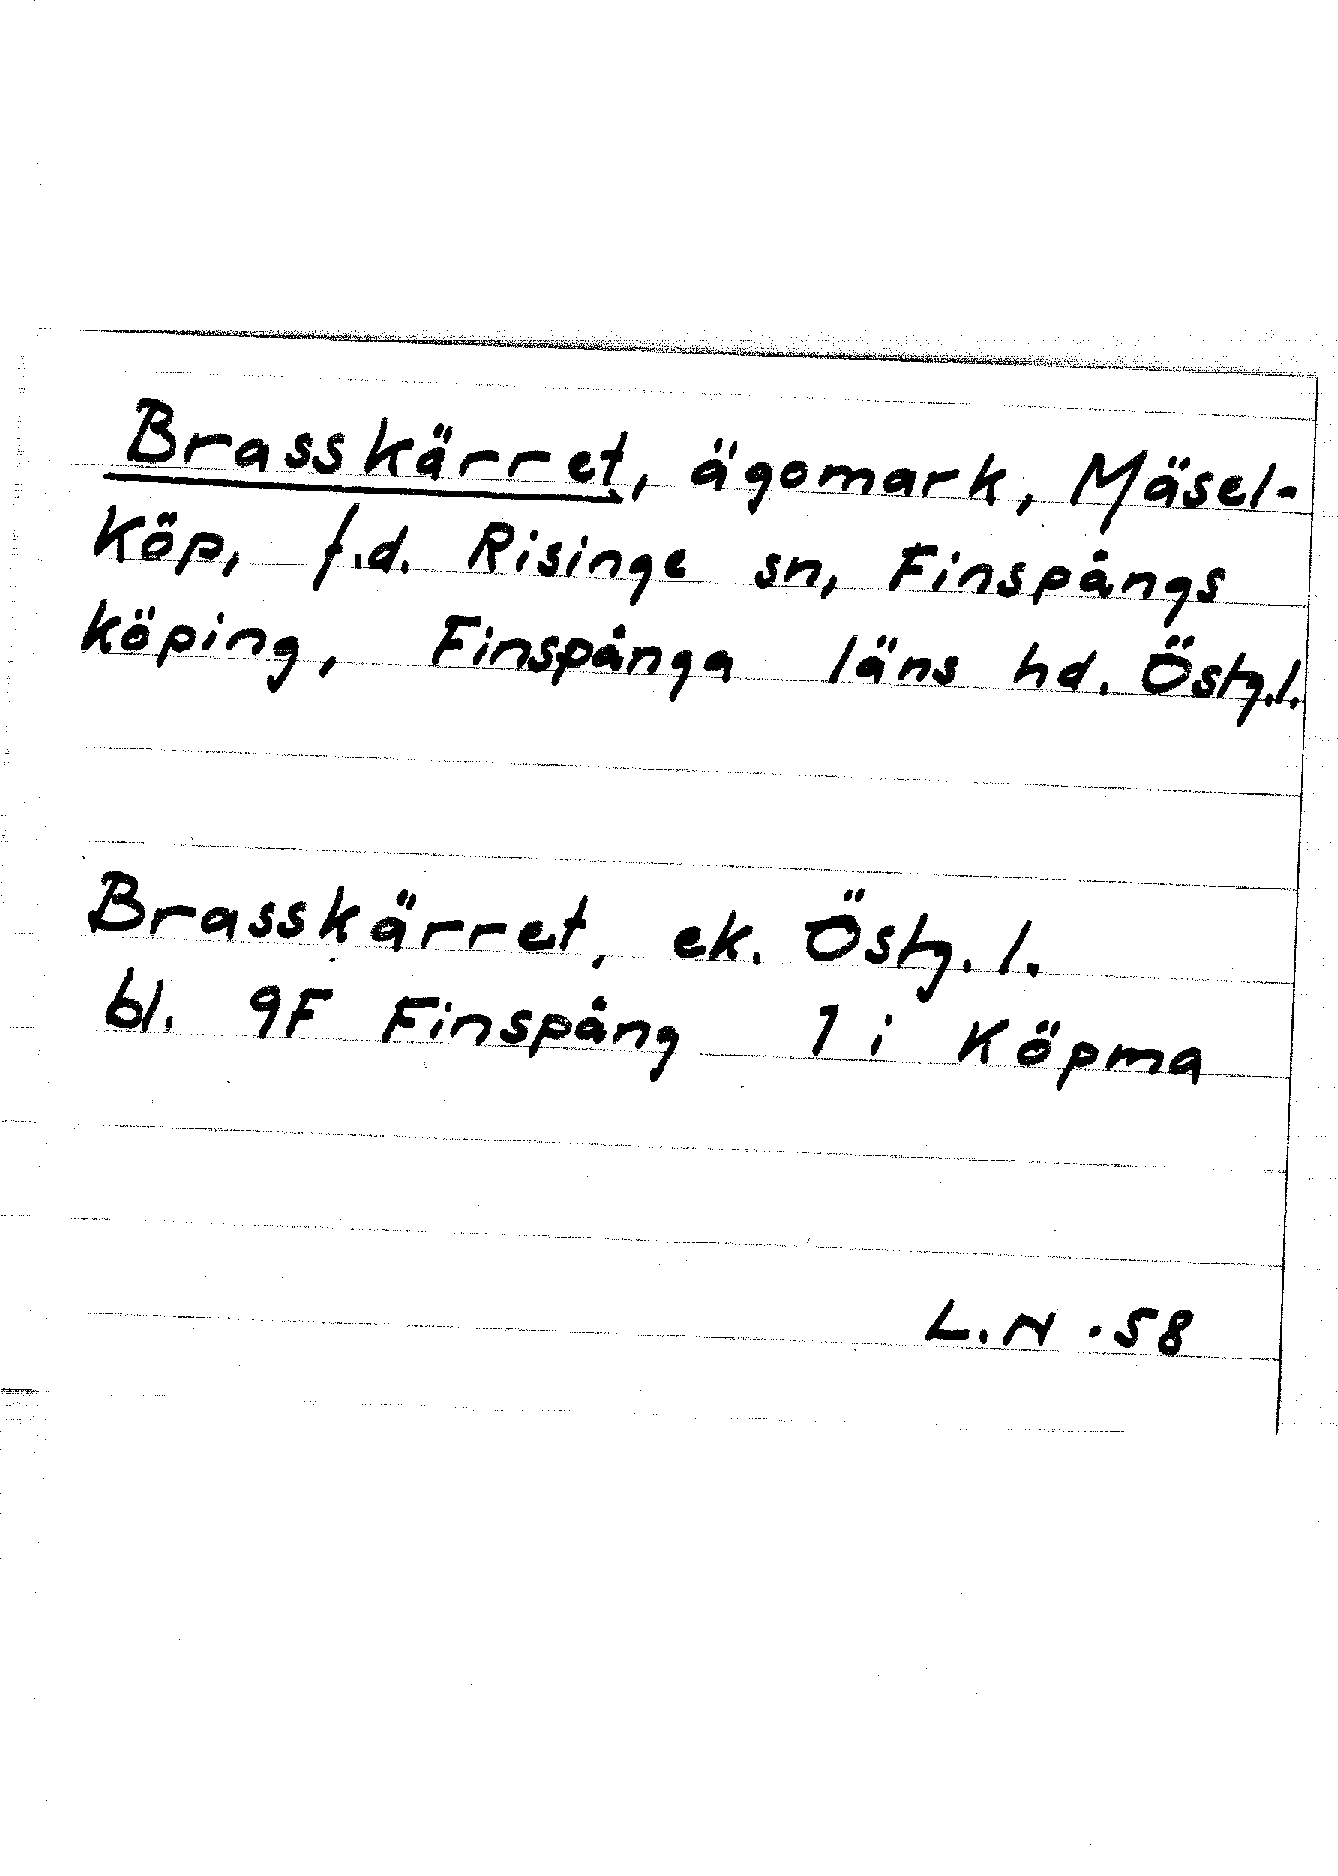 Brasskärret, ägomark, Mäsel-
köp, f.d. Risinge sn, Finspångs
köping, Finspånga läns hd. Östg.l.
Brasskärret, ek. Östg. l.
bl. 9F Finspång 1 i Köpma
L.N .58